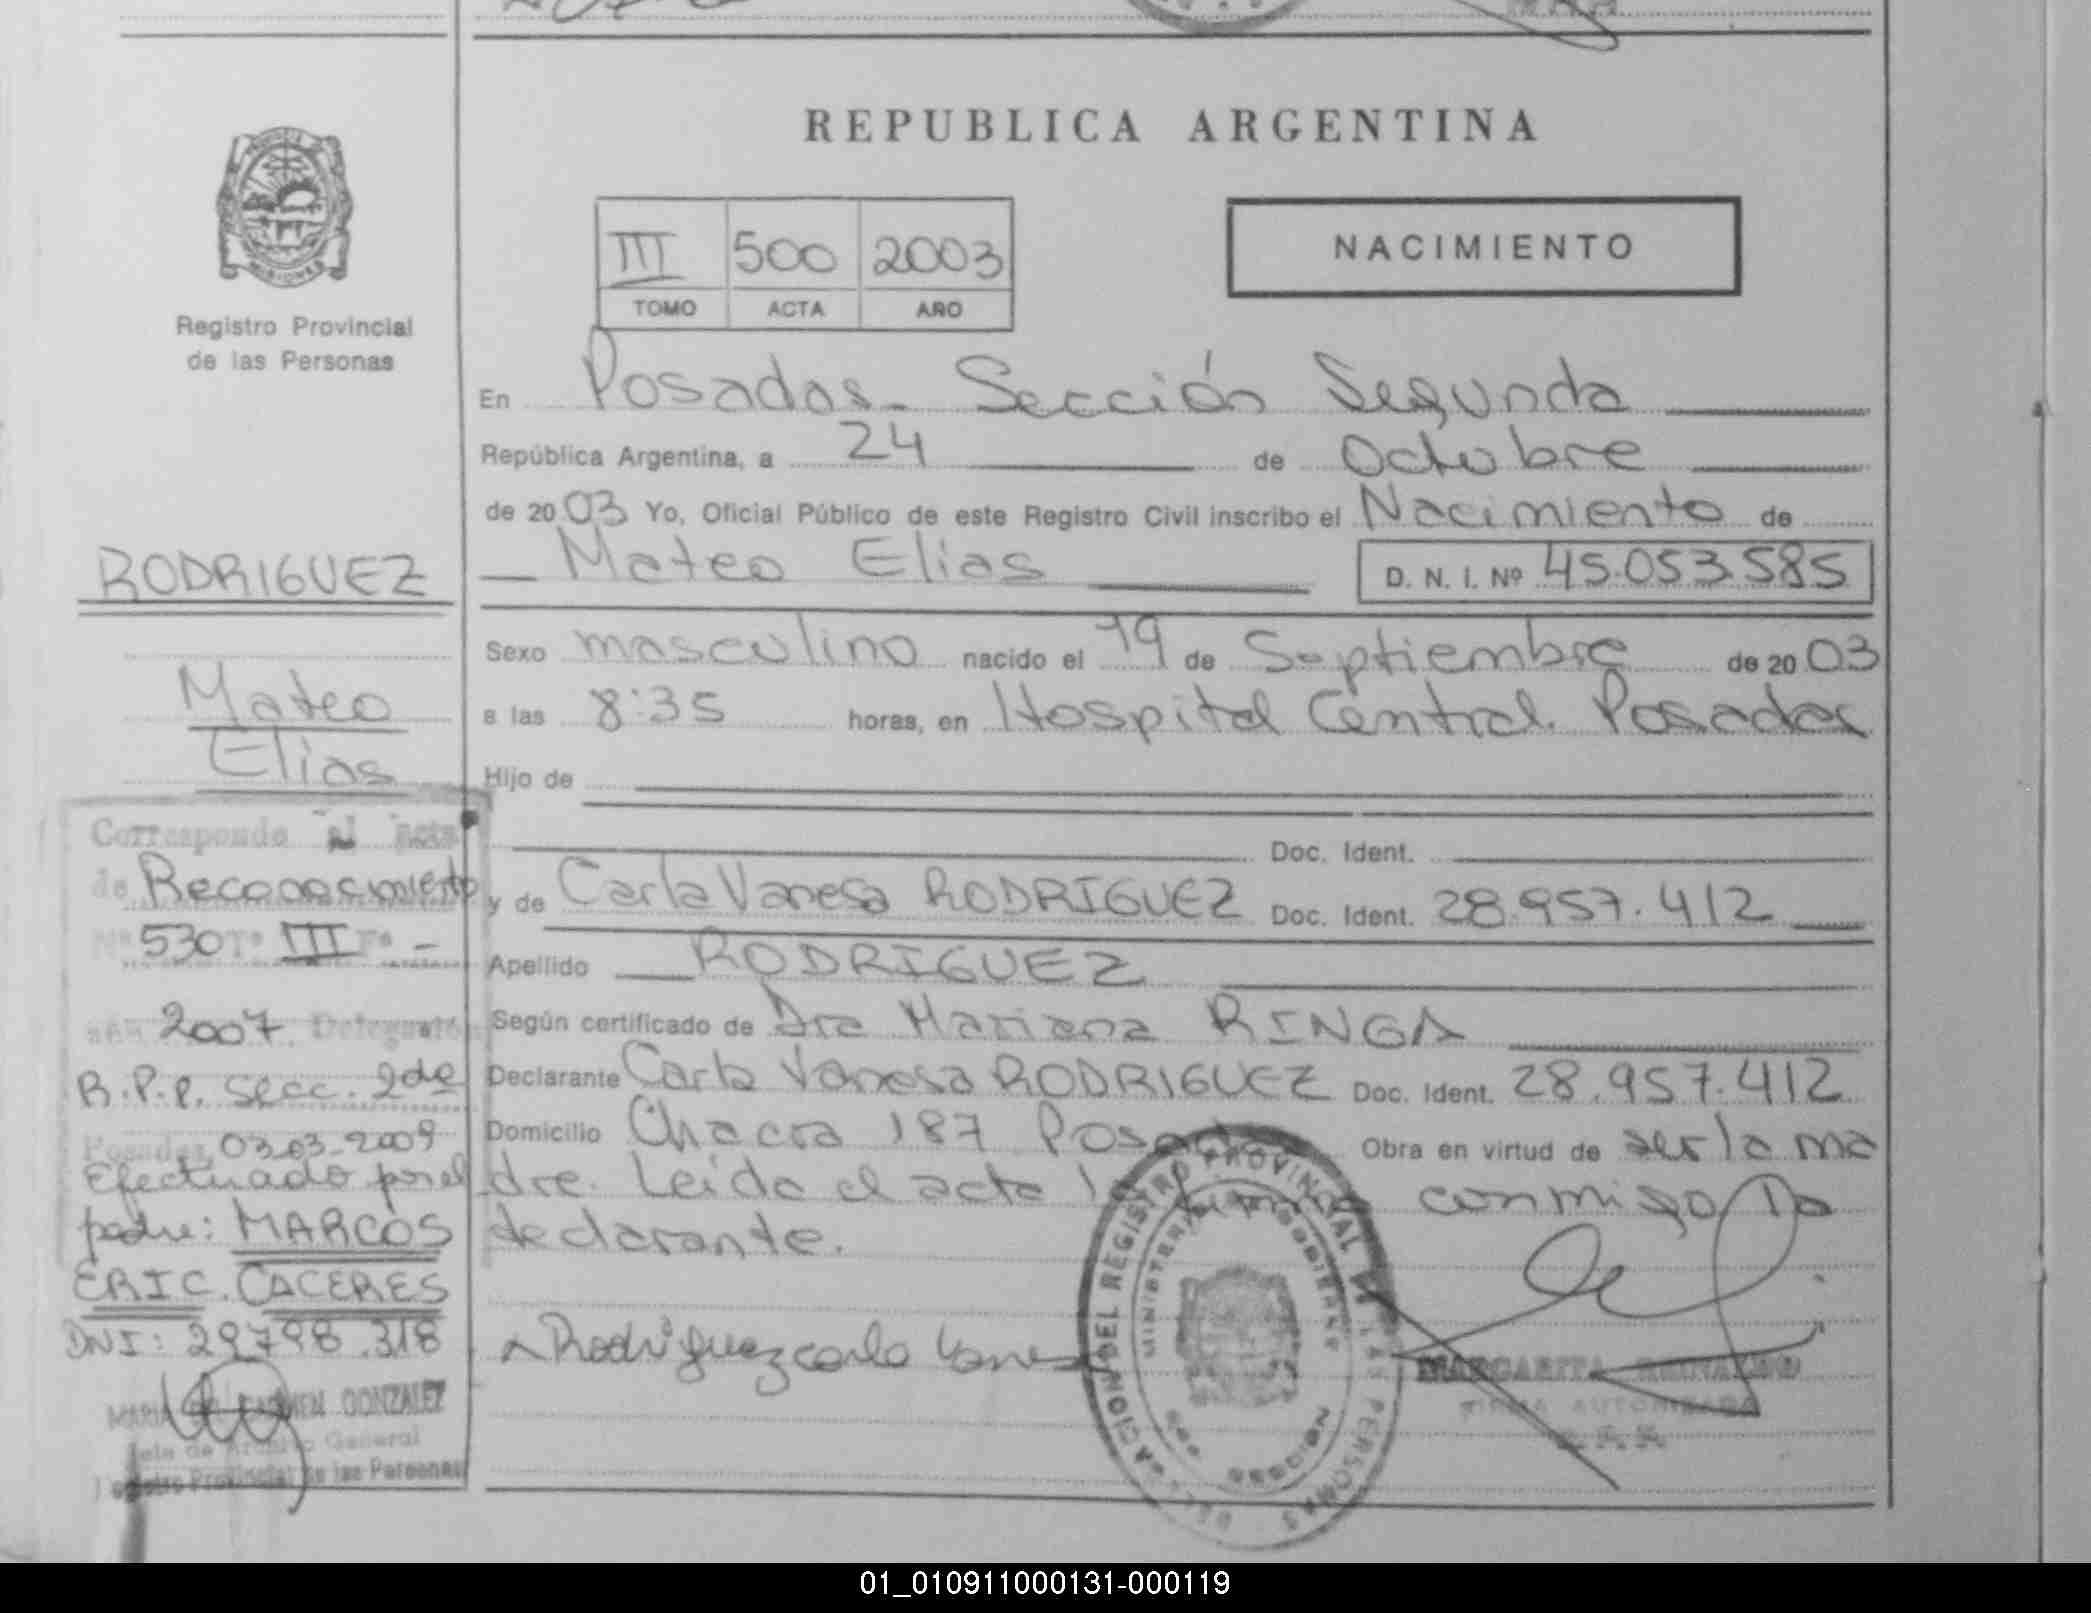 REPUBLICA ARGENTINA
III 500 2003
TOMO ACTA AÑO
NACIMIENTO
MISIONES
Registro Provincial
de las Personas
En Posadas - Sección Segunda
República Argentina, a 24 de Octubre
de 2003 Yo, Oficial Público de este Registro Civil inscribo el Nacimiento de
Mateo Elias D. N. I. Nº 45.053.585
Sexo masculino nacido el 19 de Septiembre de 2003
a las 8:35 horas, en Hospital Central. Posadas
Hijo de
Doc. Ident.
y de Carla Vanesa RODRIGUEZ Doc. Ident. 28.957.412
Apellido RODRIGUEZ
Según certificado de Dra Mariana RINGA
Declarante Carla Vanesa RODRIGUEZ Doc. Ident. 28.957.412
Domicilio Chacra 187 Posadas Obra en virtud de ser la ma
dre. Leida el acta la firma conmigo la
declarante.
Rodriguez carla Vanes
DEL REGISTRO PROVINCIAL DE LAS PERSONAS
MINISTERIO DE GOBIERNO
MISIONES
MARGARITA
FIRMA AUTORIZADA
RODRIGUEZ
Mateo
Elias
Corresponde al acta
de Reconocimiento
Nº 530 Tº III Fº -
año 2007 Delegación
R.P.P. Secc. 2da
Posadas, 03-03-2009
Efectuado por el
padre: MARCOS
ERIC. CACERES
DNI: 29798.318
MARIA DEL CARMEN GONZALEZ
Jefe de Archivo General
Registro Provincial de las Personas
01_010911000131-000119